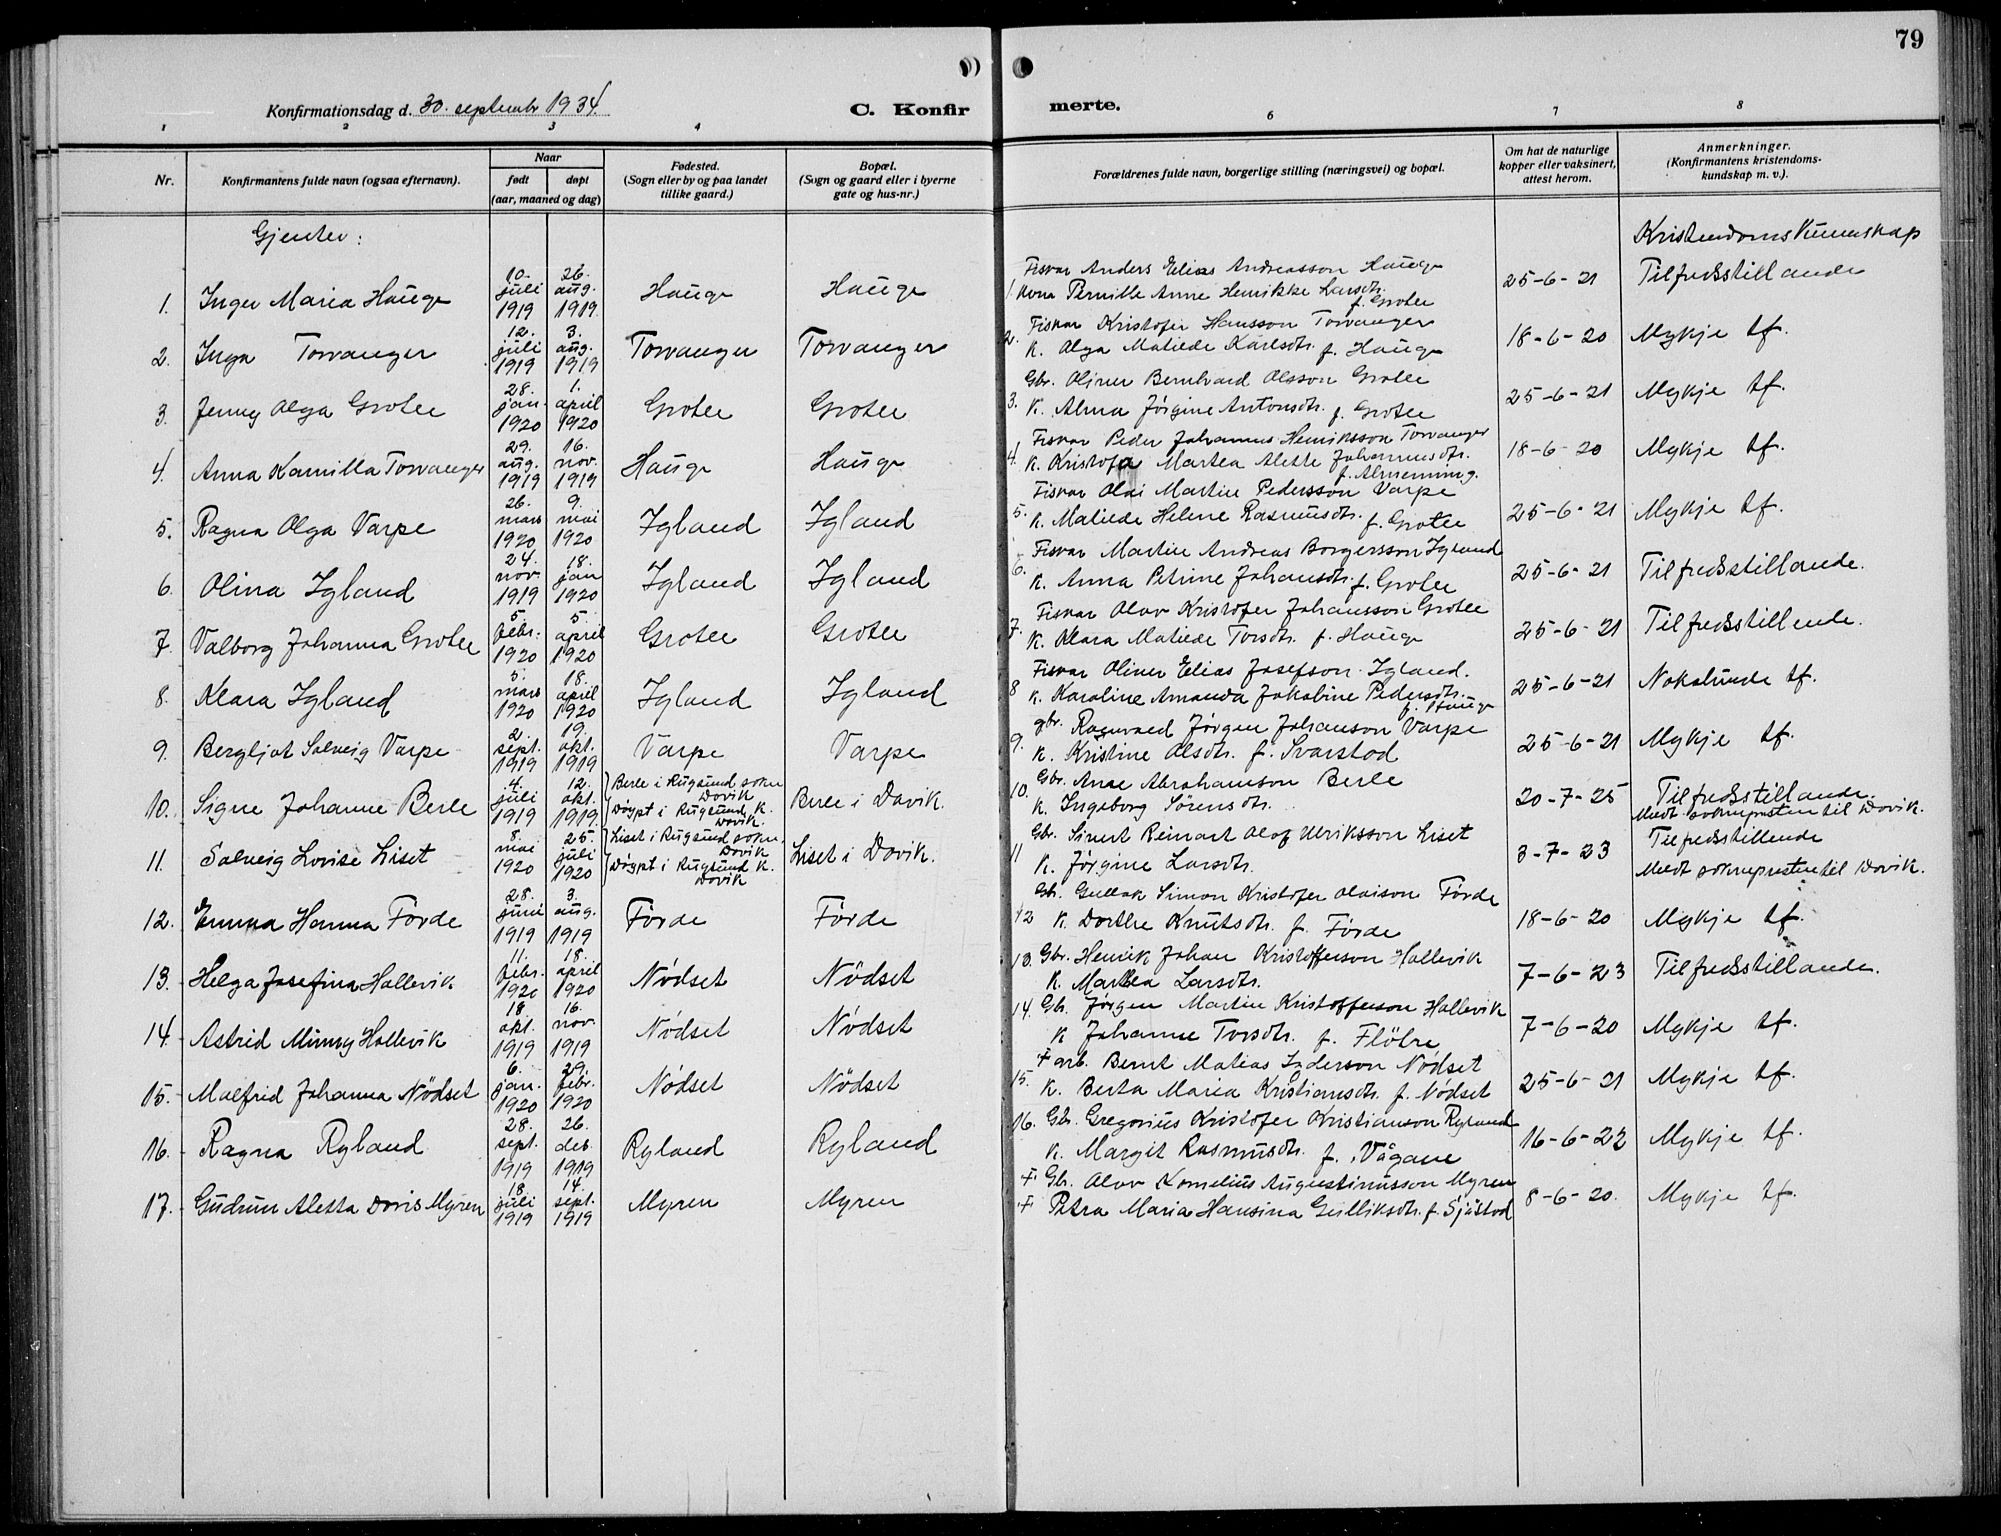 79
Konfirmationsdag d. 30. septembr 1934.
C. Konfir
merte.
1 2 3 4
6 7 8
Nr.
Konfirmantens fulde navn (ogsaa efternavn).
Naar
født døpt
(aar, maaned og dag)
Fødested.
(Sogn eller by og paa landet
tillike gaard.)
Bopæl.
(Sogn og gaard eller i byerne
gate og hus-nr.)
Forældrenes fulde navn, borgerlige stilling (næringsvei) og bopæl.
Om hat de naturlige
kopper eller vaksinert,
attest herom.
Anmerkninger.
(Konfirmantens kristendoms-
kundskap m. v.).
Gjenter:
Kristendomskunnskap
1. Inger Maria Hauge 10. juli 1919 26. aug. 1919 Hauge Hauge
1. Fiskar Anders Elias Andreasson Hauge
Kona Pernille Anne Henrikke Larsdtr. f. Grotle
25-6-21 Tilfredsstillande
2. Inga Torvanger 12. juli 1919 3. aug. 1919 Torvanger Torvanger
2. Fiskar Kristofer Hansson Torvanger
K. Olga Matilde Karlsdtr. f. Hauge
18-6-20 Mykje tf.
3. Jenny Olga Grotle 28. jan. 1920 1. april 1920 Grotle Grotle
3. Gbr. Oliver Bernhard Olsson Grotle
K. Alma Jørgine Antonsdtr. f. Grotle
25-6-21 Mykje tf.
4. Anna Kamilla Torvanger 29. aug. 1919 16. nov. 1919 Hauge Hauge
4. Fiskar Peder Johannes Henriksson Torvanger
K. Kristofa Martea Alette Johannesdtr. f. Almenning.
18-6-20 Mykje tf.
5. Ragna Olga Varpe 26. mars 1920 9. mai 1920 Igland Igland
5. Fiskar Olai Martin Pedersson Varpe
K. Matilde Helene Rasmusdtr. f. Grotle
25-6-21 Mykje tf.
6. Olina Igland 24. nov. 1919 18. jan 1920 Igland Igland
6. Fiskar Martin Andreas Borgersson Igland
K. Anna Petrine Johansdtr. f. Grotle
25-6-21 Tilfredsstillande.
7. Valborg Johanna Grotle 5. febr. 1920 5. april 1920 Grotle Grotle
7. Fiskar Olav Kristofer Johansson Grotle
K. Klara Matilde Torsdtr. f. Hauge
25-6-21 Tilfredsstillende.
8. Klara Igland 5. mars 1920 18. april 1920 Igland Igland
8 Fiskar Oliver Elias Josefson Igland.
K. Karoline Amanda Jakobine Pedersdtr. f. Hauge
25-6-21 Nokolunde tf.
9. Bergljot Solveig Varpe 2. sept. 1919 19. okt. 1919 Varpe Varpe
9. gbr. Ragnvald Jørgen Johanson Varpe
K. Kristine Olsdtr. f. Svarstad
25-6-21 Mykje tf.
10. Signe Johanne Berle 4. juli 1919 12. okt. 1919. Berle i Rugsund sokn Davik
Døypt i Rugsund K. Davik.
Berle i Davik.
10. Gbr. Anae Abrahamson Berle
K. Ingeborg Sørensdtr.
20-7-25 Tilfredsstillande.
Meldt soknepresten til Davik.
11. Solveig Lovise Liset 8. mai 1920 25. juli 1920 Liset i Rugsund sokn, Davik
Døypt i Rugsund K. Davik
Liset i Davik.
11 Gbr. Sivert Reinart Olaf Ulriksson Liset
K. Jørgine Larsdtr.
3-7-23 Tilfredsstillende
Meldt soknepresten til Davik.
12. Emma Hanna Förde 28. juni 1919 3. aug. 1919 Förde Förde
12 Gbr. Gullak Simon Kristofer Olaison Förde
K. Dorthe Knutsdtr. f. Förde
18-6-20 Mykje tf.
13. Helga Josefina Hallevik 11. febr. 1920 18. april 1920 Nödset Nödset
13. Gbr. Henrik Johan Kristofferson Hallevik
K. Martea Larsdtr.
7-6-23 Tilfredsstillande.
14. Astrid Minny Hallevik 18 okt. 1919 16. nov. 1919 Nödset Nödset
14. Gbr. Jörgen Martin Kristofferson Hallevik
K Johanne Torsdtr. f. Flöhre
7-6-20 Mykje tf.
15. Malfrid Johanna Nödset 6. jan. 1920 29. febr. 1920 Nödset Nödset
15. Farb. Bernt Matias Inderson Nödset
K. Berta Maria Kristiansdtr. f. Nödset
25-6-21 Mykje tf.
16. Ragna Ryland 28. sept. 1919 26. des. 1919 Ryland Ryland
16. Gbr. Gregorius Kristofer Kristianson Ryland
K. Margit Rasmusdtr. f. Vågane
16-6-22 Mykje tf.
17. Gudrun Aletta Doris Myren 18 juli 1919 14. sept. 1919 Myren Myren
+ Gbr. Olav Kornelius Augustinusson Myren
+ Petra Maria Hansina Gulliksdtr. f. Sjåstad
8-6-20. Mykje tf.